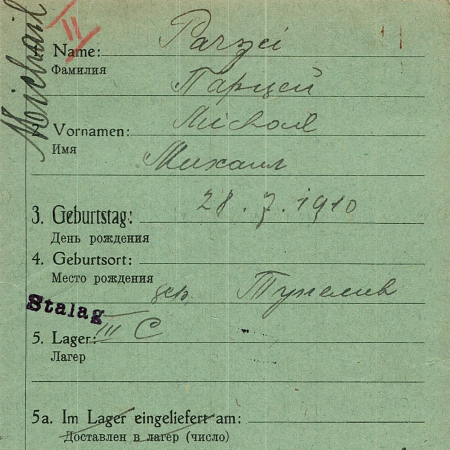 Michail
II
1. Name: Parzei
Фамилия
Парцей
2. Vornamen: Michail
Имя
Михаил
3. Geburtstag: 28.7.1910
День рождения
4. Geburtsort:
Место рождения
дер.
Stalag
5. Lager: III C
Лагер
5a. Im Lager eingeliefert am:
Доставлен в лагер (число)